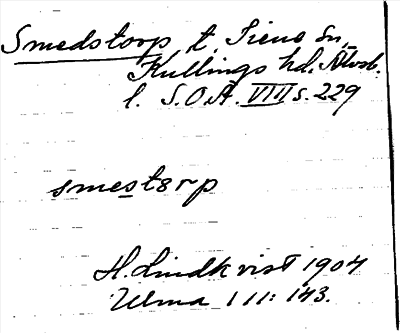 Smedstorp, t. Siene sn,
Kullings hd. Älvsb.
l. S.O.Ä. VIII s. 229
smestørp
H. Lindkvist 1904
Ulma 111: 143.